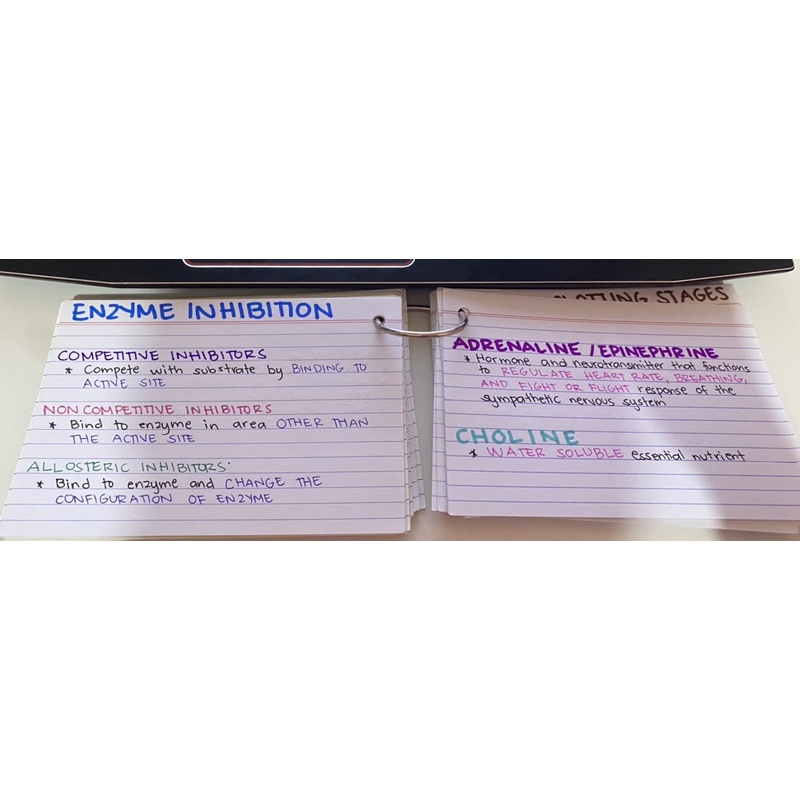 ENZYME INHIBITION
COMPETITIVE INHIBITORS
* Compete with substrate by BINDING TO
ACTIVE SITE
NON COMPETITIVE INHIBITORS
* Bind to enzyme in area OTHER THAN
THE ACTIVE SITE
ALLOSTERIC INHIBITORS
* Bind to enzyme and CHANGE THE
CONFIGURATION OF ENZYME
STAGES
ADRENALINE / EPINEPHRINE
* Hormone and neurotransmitter that functions
to REGULATE HEART RATE, BREATHING,
AND FIGHT OR FLIGHT response of the
sympathetic nervous system
CHOLINE
* WATER SOLUBLE essential nutrient